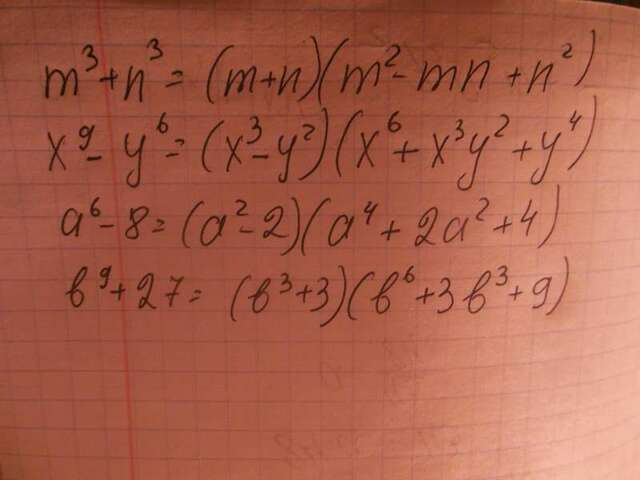 m³+n³=(m+n)(m²-mn+n²)
x⁹-y⁶=(x³-y²)(x⁶+x³y²+y⁴)
a⁶-8=(a²-2)(a⁴+2a²+4)
b⁹+27=(b³+3)(b⁶+3b³+9)